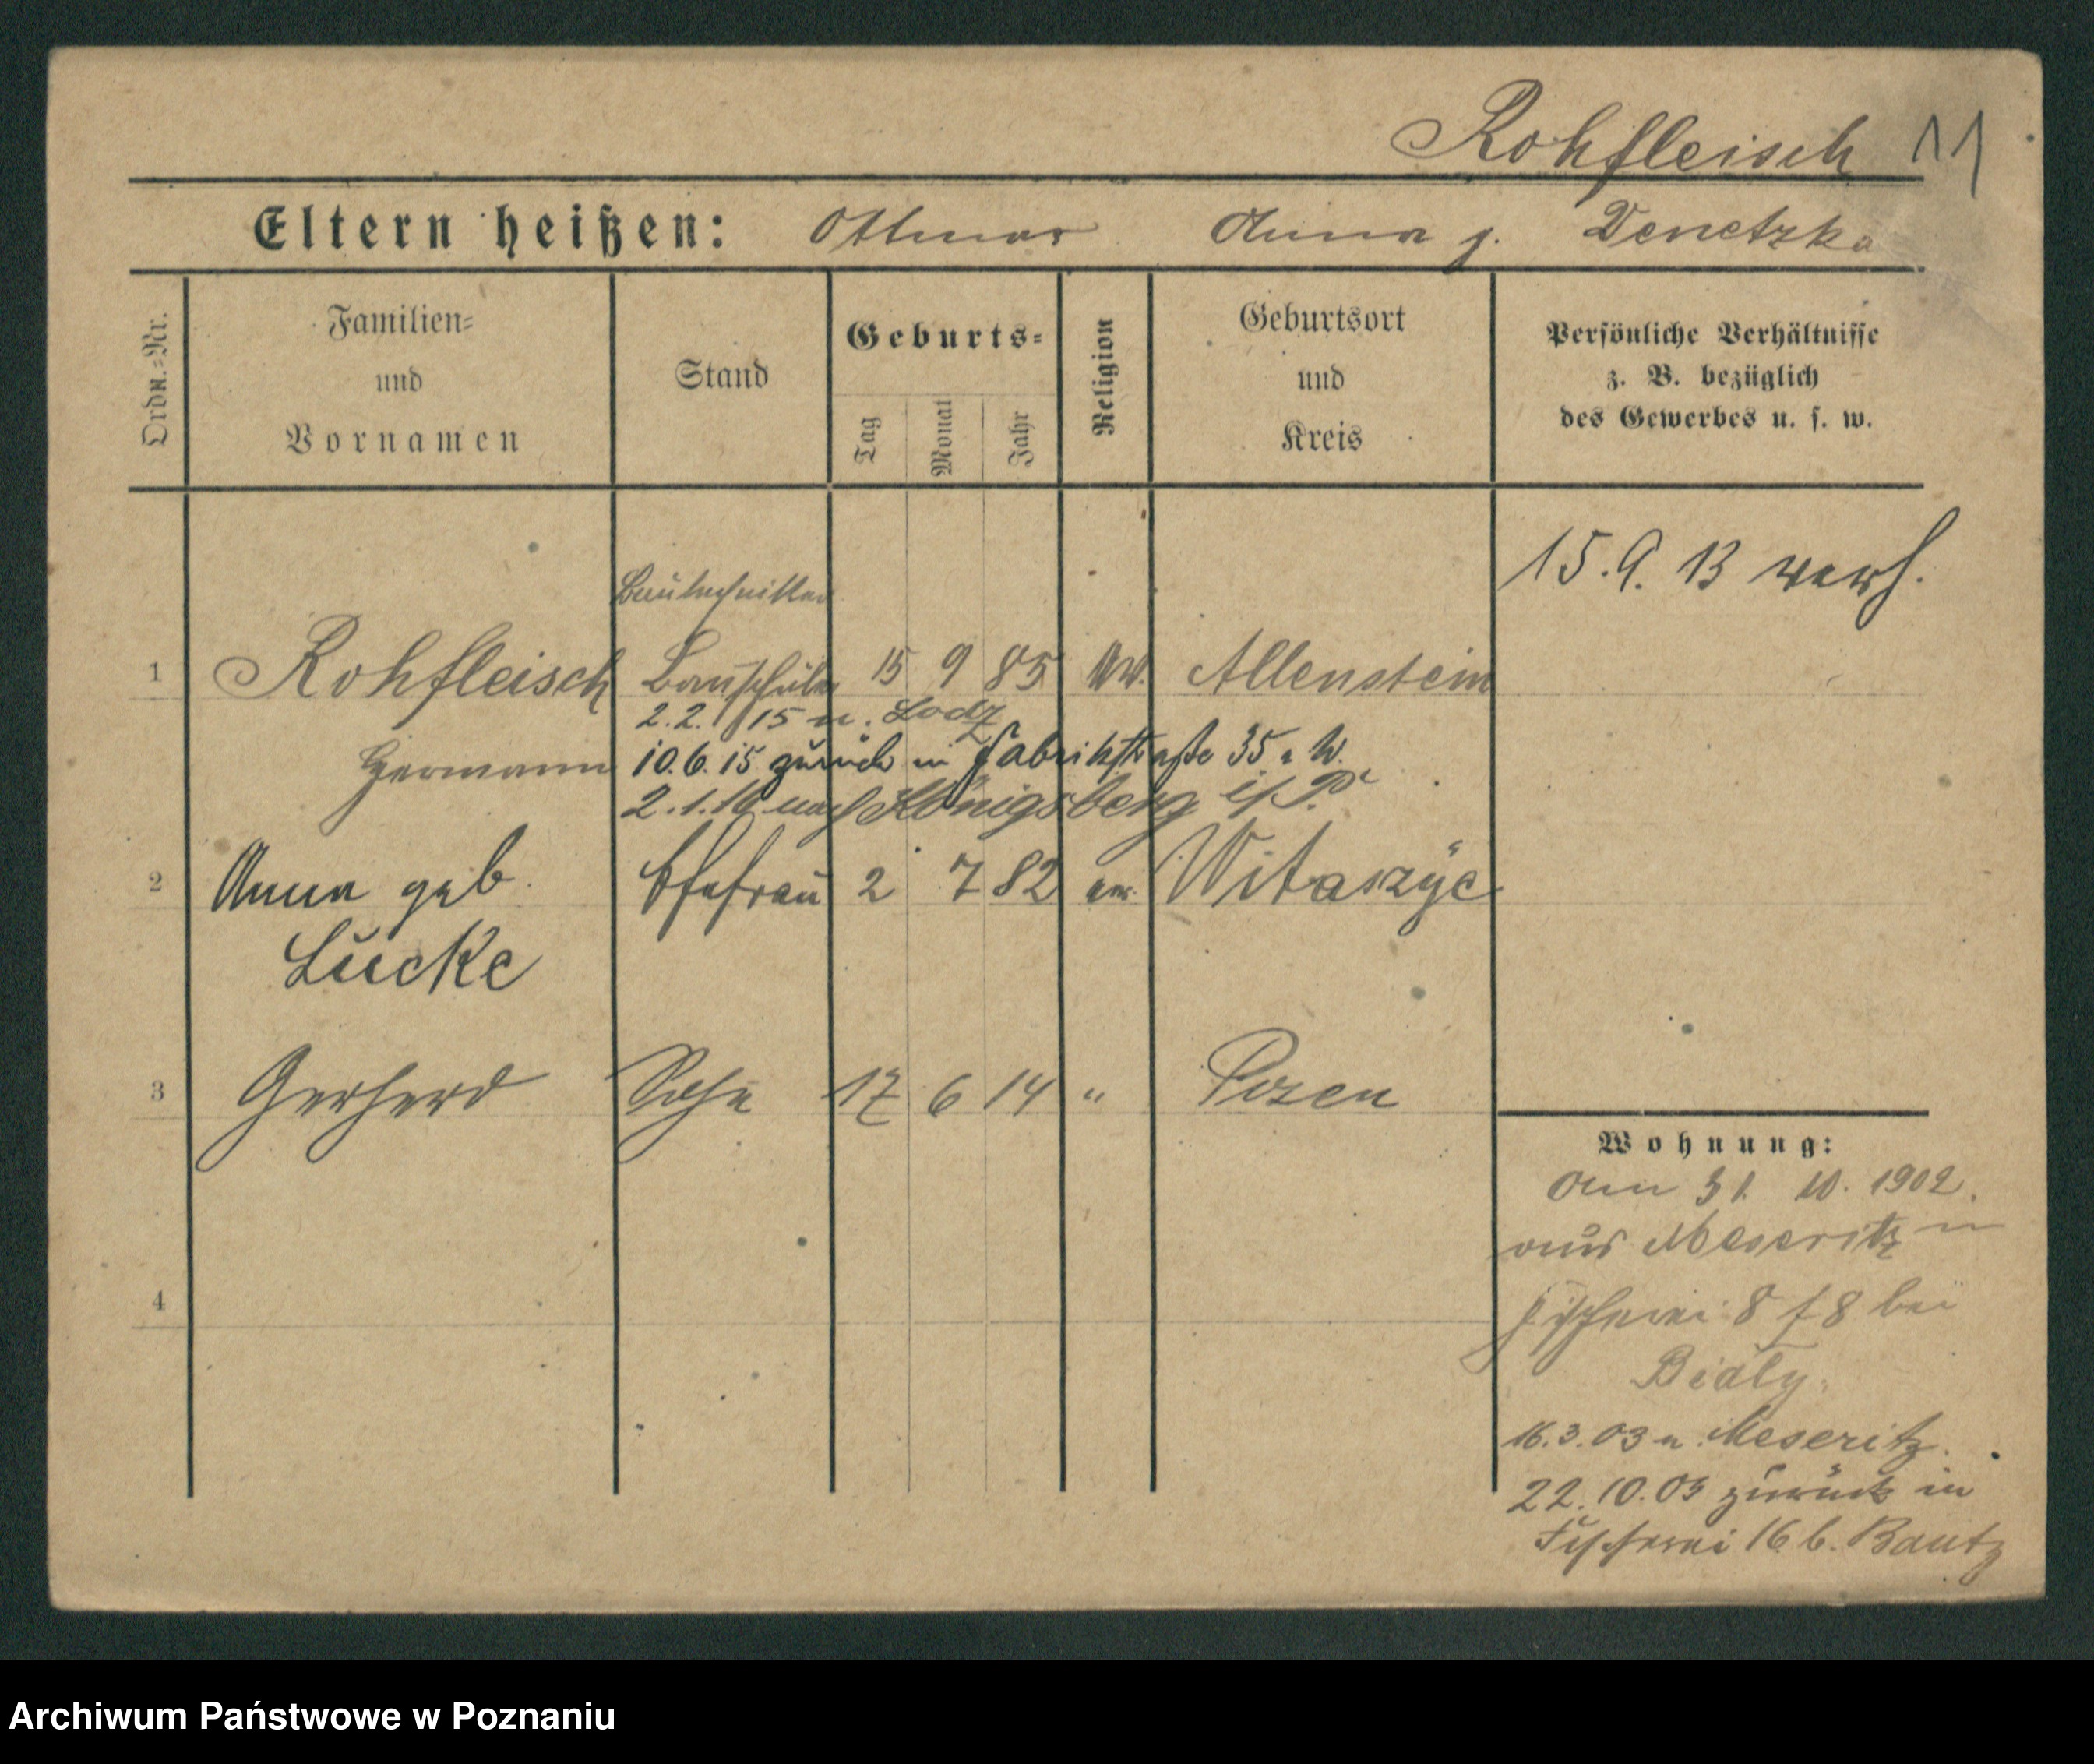 Rohfleisch 11
Eltern heißen: Ottmar Anna g. Denetzka
Ordn.=Nr.
Familien=
und
Vornamen
Stand
Geburts=
Tag
Monat
Jahr
Religion
Geburtsort
und
Kreis
Persönliche Verhältnisse
z. B. bezüglich
des Gewerbes u. s. w.
15.9.13 verh.
Bautechniker
1 Rohfleisch Bauschüler 15 9 85 Allenstein
2.2.15 n. Lodz
Hermann 10.6.15 zurück in Fabrikstraße 35 a W.
2.1.16 nach Königsberg i/P.
2 Anna geb. Ehefrau 2 7 82 ev. Witaszyc
Lücke
3 Gerherd Sohn 17 6 14 " Posen
Wohnung:
Am 31. 10. 1902.
aus Meseritz n
4
Fischerei 8 f 8 bei
Bialy.
16.3.03 n. Meseritz.
22.10.03 zurück in
Fischerei 16 b. Bautz
Archiwum Państwowe w Poznaniu